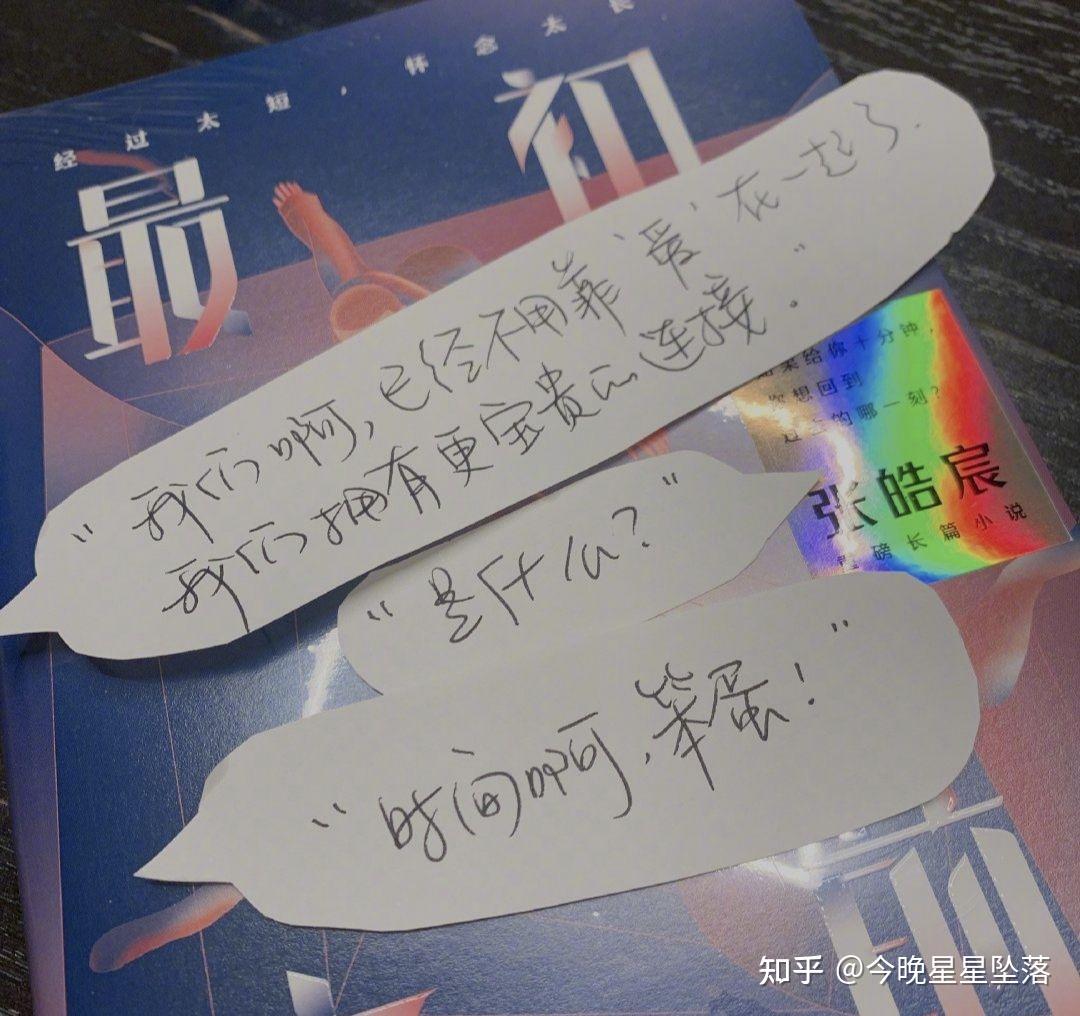 经过太短，怀念太长
最初
“我们啊，已经不用靠‘爱’在一起了.
我们拥有更宝贵的连接。”
果给你十分钟，
你想回到
过去的哪一刻？
张皓宸
重磅长篇小说
“是什么？”
“时间啊，笨蛋！”
知乎 @今晚星星坠落